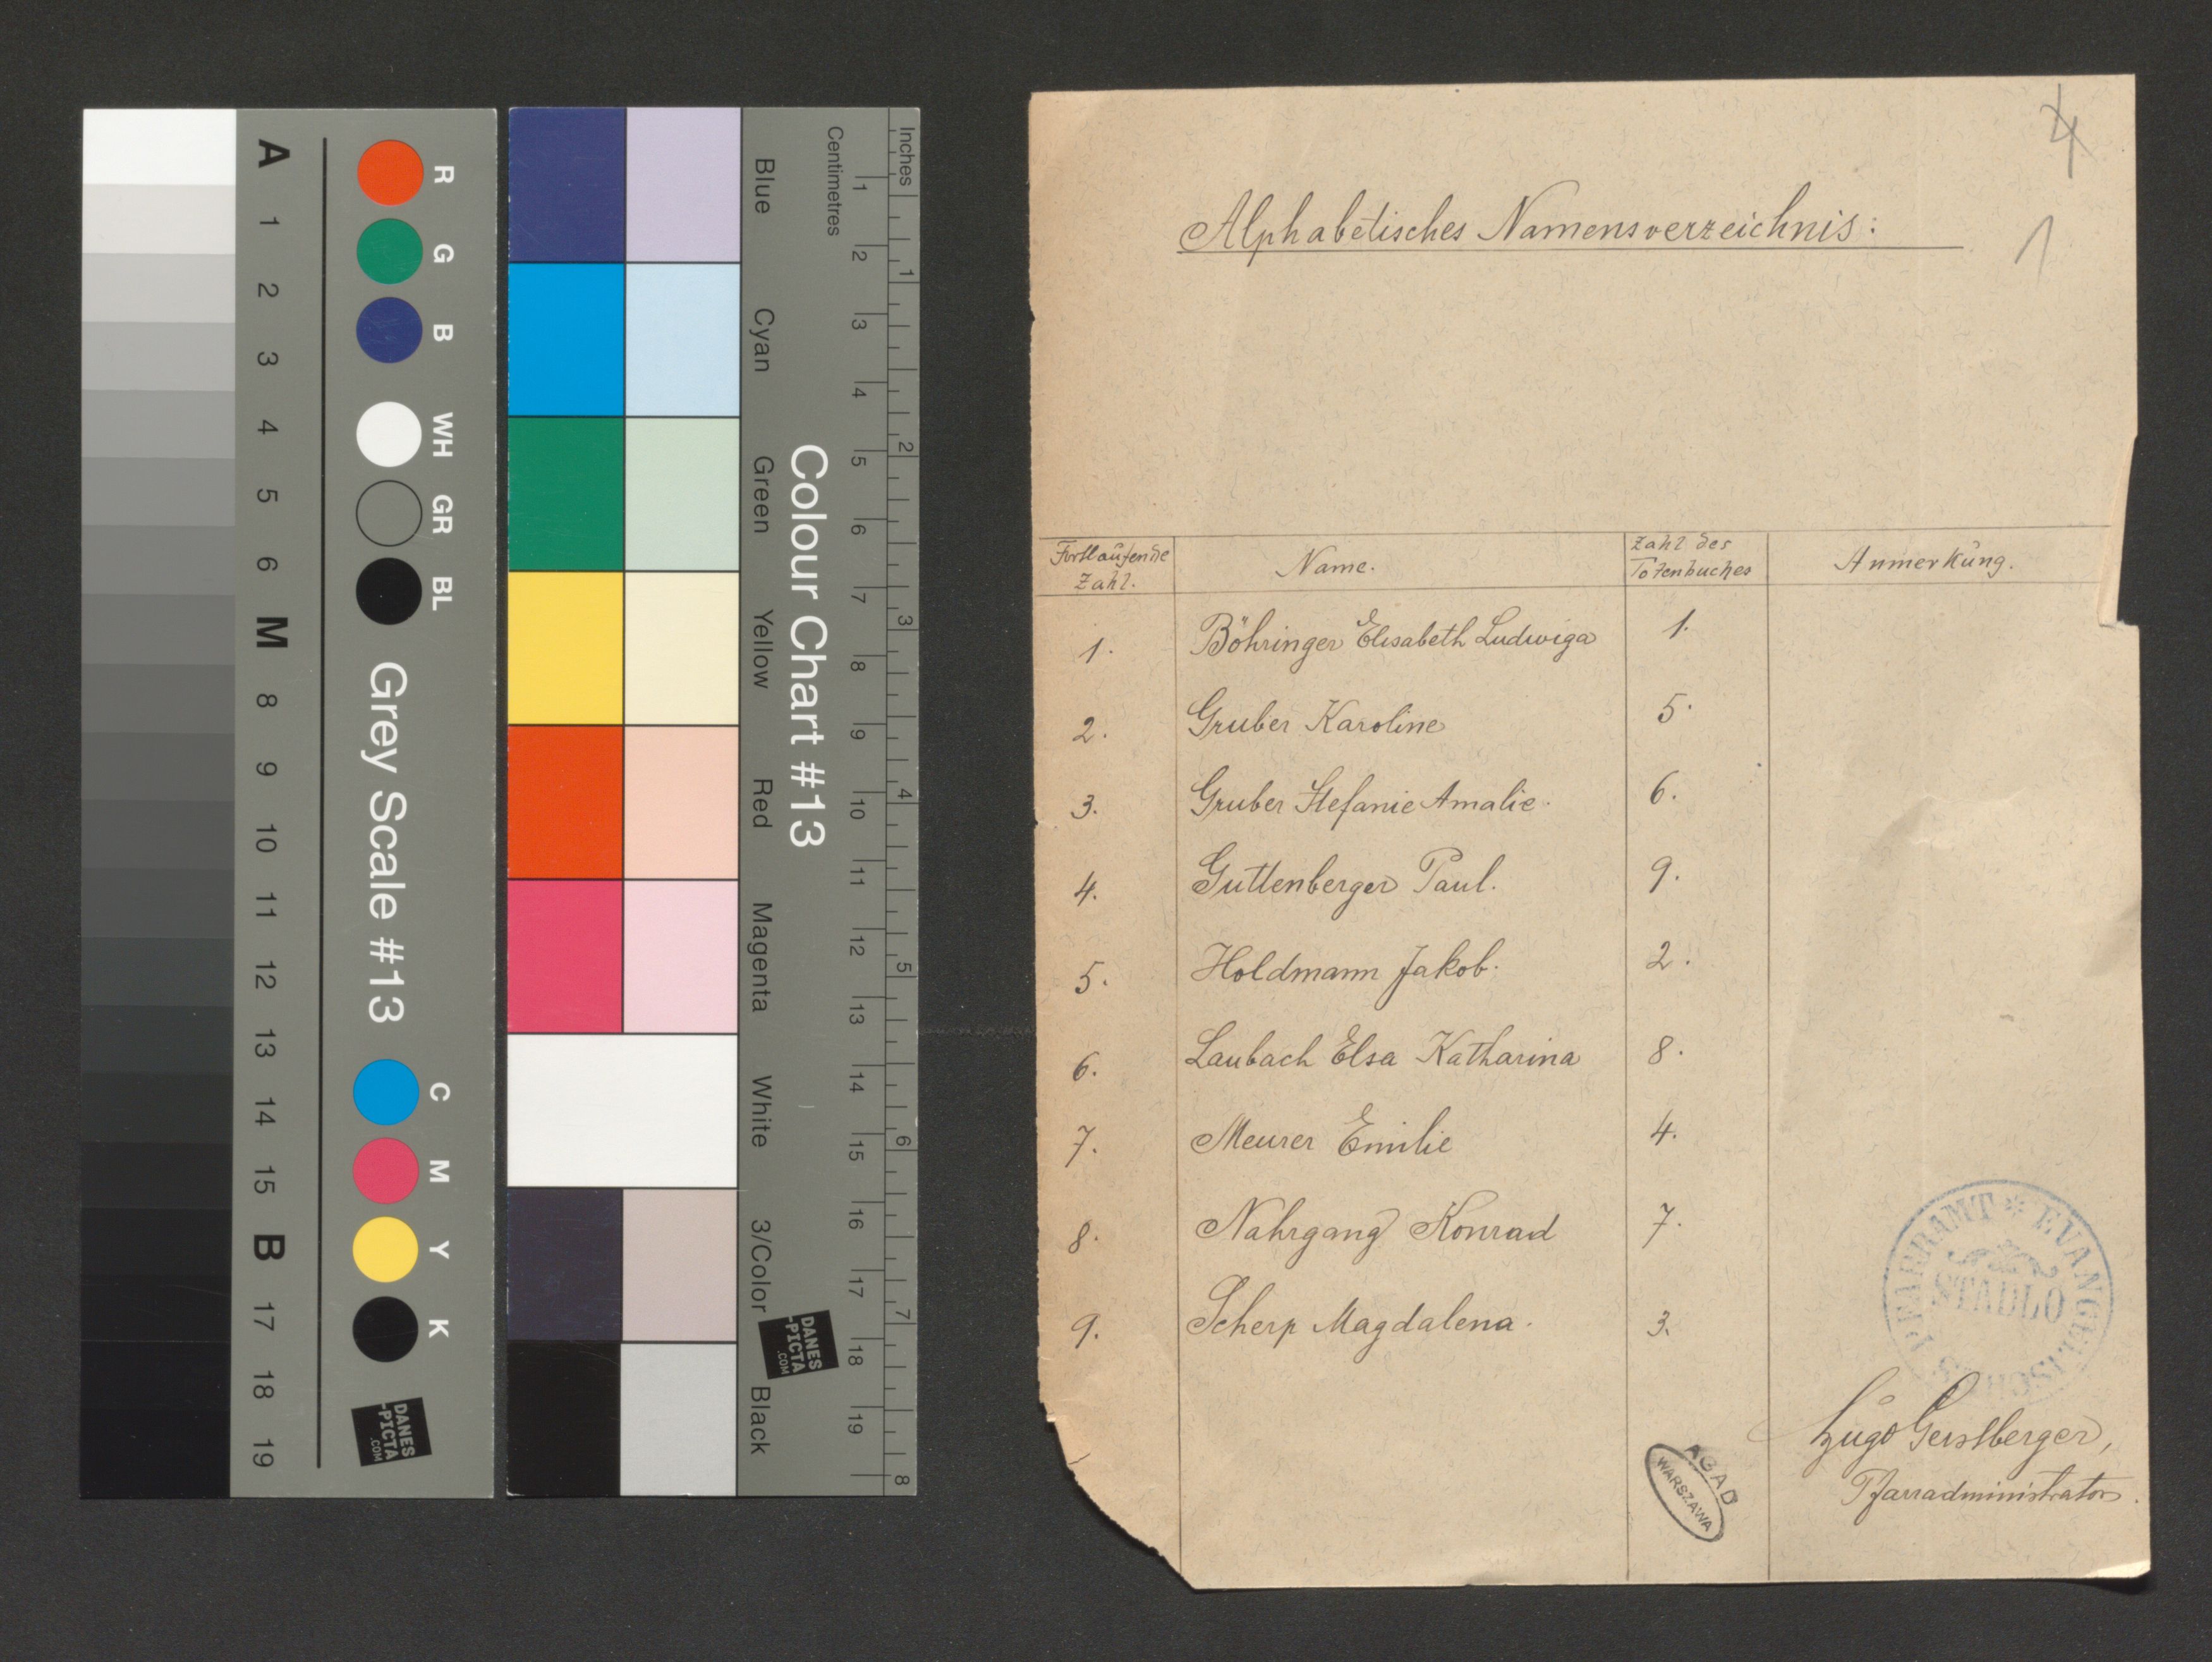 A 1 2 3 4 5 6 M 8 9 10 11 12 13 14 15 B 17 18 19
R G B WH GR BL
Grey Scale #13
C M Y K
DANES
-PICTA
.COM
Blue Cyan Green Yellow Red Magenta White 3/Color Black
Colour Chart #13
Centimetres 1 2 3 4 5 6 7 8 9 10 11 12 13 14 15 16 17 18 19
Inches 1 2 3 4 5 6 7 8
DANES
-PICTA
.COM
4
1
Alphabetisches Namensverzeichnis:
Fortlaufende Zahl. Name. Zahl des Totenbuches Anmerkung.
1. Böhringer Elisabeth Ludwiga 1.
2. Gruber Karoline 5.
3. Gruber Stefanie Amalie. 6.
4. Guttenberger Paul. 9.
5. Holdmann Jakob. 2.
6. Laubach Elsa Katharina 8.
7. Meurer Emilie 4.
8. Nahrgang Konrad 7.
9. Scherp Magdalena. 3.
PFARRAMT * EVANGELISCHES
STADLO
Hugo Gerstberger,
Pfarradministrator.
AGAD
WARSZAWA